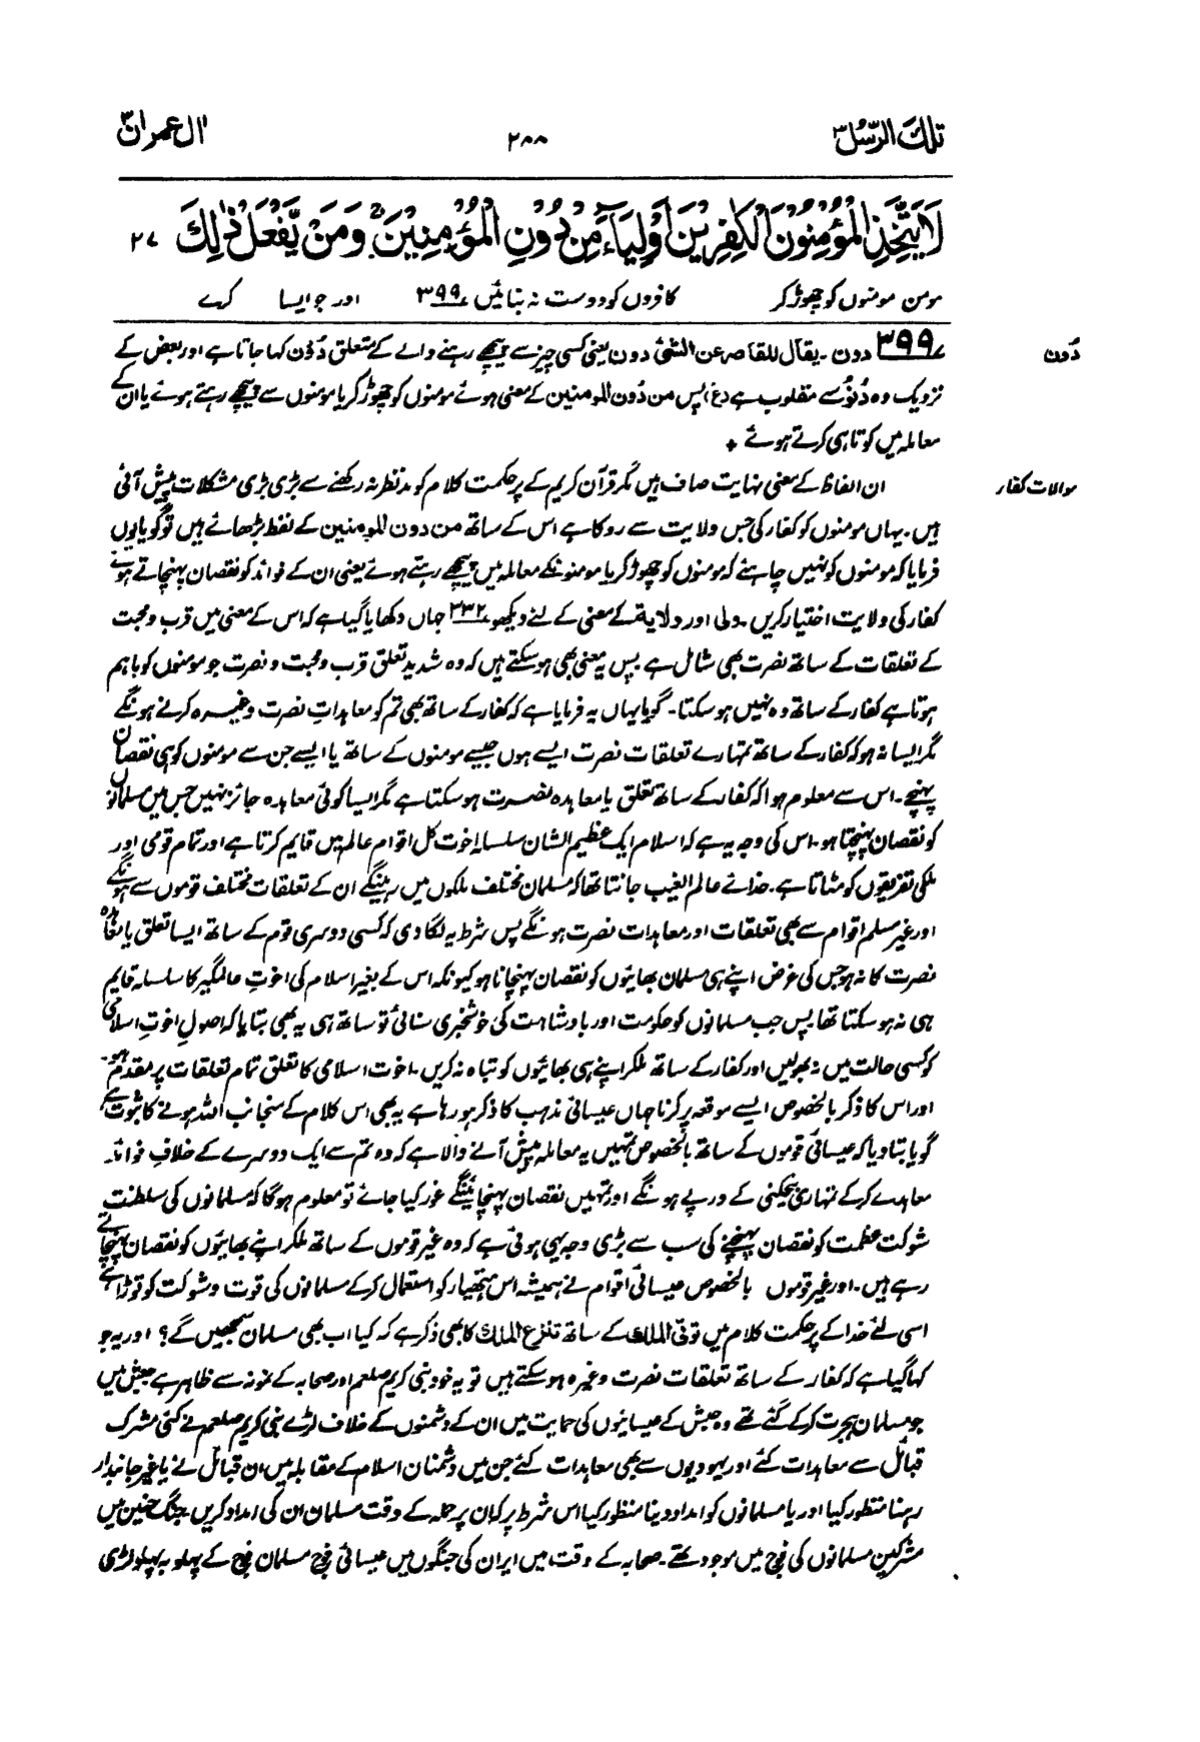 تلك الرّسل ٣ ٢٨٨ اٰل عمران ٣
لَا يَتَّخِذِ الْمُؤْمِنُوْنَ الْكٰفِرِيْنَ اَوْلِيَآءَ مِنْ دُوْنِ الْمُؤْمِنِيْنَ ۚ وَمَنْ يَّفْعَلْ ذٰلِكَ ٢٧
مومن مومنوں کو چھوڑ کر کافروں کو دوست نہ بنائیں ٣٩٩ اور جو ایسا کرے
دُون
٣٩٩ دون۔ یقال للقاصر عن الشئ دون یعنی کسی چیز سے پیچھے رہنے والے کے متعلق دُوْن کہا جاتا ہے اور بعض کے
نزدیک وہ دُنُوّ سے مقلوب ہے (غ) پس من دُون المومنین کے معنی ہوئے مومنوں کو چھوڑ کر یا مومنوں سے پیچھے رہتے ہوئے یا ان کے
معاملہ میں کوتاہی کرتے ہوئے ٭
موالات کفار
ان الفاظ کے معنی نہایت صاف ہیں مگر قرآن کریم کے پرحکمت کلام کو مدنظر نہ رکھنے سے بڑی بڑی مشکلات پیش آئی
ہیں۔ یہاں مومنوں کو کفار کی جس ولایت سے روکا ہے اس کے ساتھ من دون المومنین کے لفظ بڑھائے ہیں تو گویا یوں
فرمایا کہ مومنوں کو نہیں چاہئے کہ مومنوں کو چھوڑ کر یا مومنونکے معاملہ میں پیچھے رہتے ہوئے یعنی ان کے فوائد کو نقصان پہنچاتے ہوئے
کفار کی ولایت اختیار کریں۔ ولی اور ولایة کے معنی کے لئے دیکھو ٣٣٢ جہاں دکھایا گیا ہے کہ اس کے معنی میں قرب و محبت
کے تعلقات کے ساتھ نصرت بھی شامل ہے پس یہ معنی بھی ہو سکتے ہیں کہ وہ شدید تعلق قرب و محبت و نصرت جو مومنوں کو باہم
ہوتا ہے کفار کے ساتھ وہ نہیں ہو سکتا۔ گویا یہاں یہ فرمایا ہے کہ کفار کے ساتھ بھی تم کو معاہداتِ نصرت وغیرہ کرنے ہونگے
مگر ایسا نہ ہو کہ کفار کے ساتھ تمہارے تعلقات نصرت ایسے ہوں جیسے مومنوں کے ساتھ یا ایسے جن سے مومنوں کو ہی نقصان
پہنچے۔ اس سے معلوم ہوا کہ کفار کے ساتھ تعلق یا معاہدہ نصرت ہو سکتا ہے مگر ایسا کوئی معاہدہ جائز نہیں جس میں مسلمانوں
کو نقصان پہنچتا ہو۔ اس کی وجہ یہ ہے کہ اسلام ایک عظیم الشان سلسلہ اخوت کل اقوام عالم میں قایم کرتا ہے اور تمام قومی اور
ملکی تفریقوں کو مٹاتا ہے۔ خدائے عالم الغیب جانتا تھا کہ مسلمان مختلف ملکوں میں رہینگے ان کے تعلقات مختلف قوموں سے ہونگے
اور غیر مسلم اقوام سے بھی تعلقات اور معاہدات نصرت ہونگے پس شرط یہ لگا دی کہ کسی دوسری قوم کے ساتھ ایسا تعلق یا معاہدہ
نصرت کا نہ ہو جس کی غرض اپنے ہی مسلمان بھائیوں کو نقصان پہنچانا ہو کیونکہ اس کے بغیر اسلام کی اخوتِ عالمگیر کا سلسلہ قایم
ہی نہ ہو سکتا تھا پس جب مسلمانوں کو حکومت اور بادشاہت کی خوشخبری سنائی تو ساتھ ہی یہ بھی بتایا کہ اصولِ اخوتِ اسلامی
کو کسی حالت میں نہ بھولیں اور کفار کے ساتھ ملکر اپنے ہی بھائیوں کو تباہ نہ کریں۔ اخوت اسلامی کا تعلق تمام تعلقات پر مقدم ہو۔
اور اس کا ذکر بالخصوص ایسے موقعہ پر کرنا جہاں عیسائی مذہب کا ذکر ہو رہا ہے یہ بھی اس کلام کے منجانب اللہ ہونے کا ثبوت ہے
گویا بتا دیا کہ عیسائی قوموں کے ساتھ بالخصوص تمہیں یہ معاملہ پیش آنے والا ہے کہ وہ تم سے ایک دوسرے کے خلافِ فوائد
معاہدے کر کے تمہاری بیخکنی کے درپے ہونگے اور تمہیں نقصان پہنچائینگے غور کیا جائے تو معلوم ہوگا کہ مسلمانوں کی سلطنت
شوکت عظمت کو نقصان پہنچنے کی سب سے بڑی وجہ یہی ہوئی ہے کہ وہ غیر قوموں کے ساتھ ملکر اپنے بھائیوں کو نقصان پہنچاتے
رہے ہیں۔ اور غیر قوموں بالخصوص عیسائی اقوام نے ہمیشہ اس ہتھیار کو استعمال کر کے مسلمانوں کی قوت و شوکت کو توڑا ہے
اسی لئے خدا کے پرحکمت کلام میں توتی الملک کے ساتھ تنزع الملك کا بھی ذکر ہے کہ کیا اب بھی مسلمان سمجھیں گے؟ اور یہ جو
کہا گیا ہے کہ کفار کے ساتھ تعلقات نصرت وغیرہ ہو سکتے ہیں تو یہ خود نبی کریم صلعم اور صحابہ کے نمونہ سے ظاہر ہے حبش میں
جو مسلمان ہجرت کر کے گئے تھے وہ حبش کے عیسائیوں کی حمایت میں ان کے دشمنوں کے خلاف لڑے نبی کریم صلعم نے کئی مشرک
قبائل سے معاہدات کئے اور یہودیوں سے بھی معاہدات کئے جن میں دشمنان اسلام کے مقابلہ میں ان قبائل نے یا غیر جانبدار
رہنا منظور کیا اور یا مسلمانوں کو امداد دینا منظور کیا اس شرط پر کہ ان پر حملہ کے وقت مسلمان ان کی امداد کریں۔ جنگ حنین میں
مشرکین مسلمانوں کی فوج میں موجود تھے۔ صحابہ کے وقت میں ایران کی جنگوں میں عیسائی فوج مسلمان فوج کے پہلو بہ پہلو لڑی